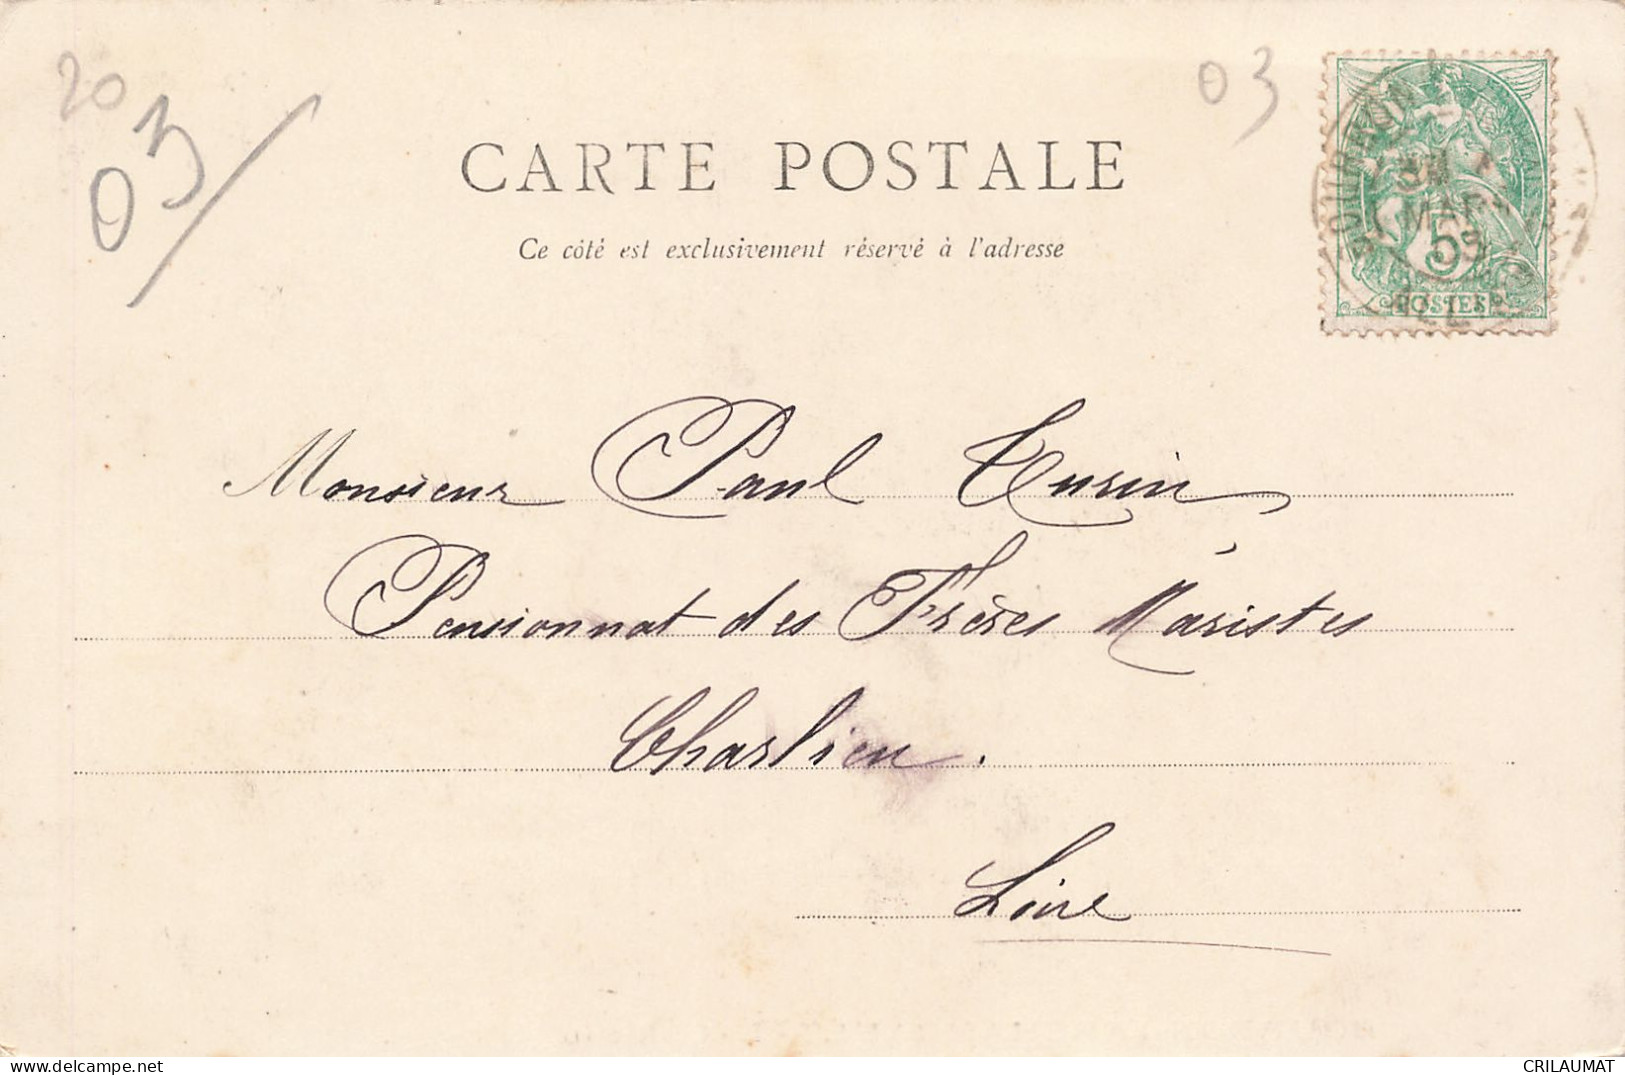 20
03
03
CARTE POSTALE
Ce côté est exclusivement réservé à l'adresse
BOURBON
MARS
03
5
POSTES
Monsieur Paul Turin
Pensionnat des Frères Maristes
Charlieu.
Loire
CRILAUMAT